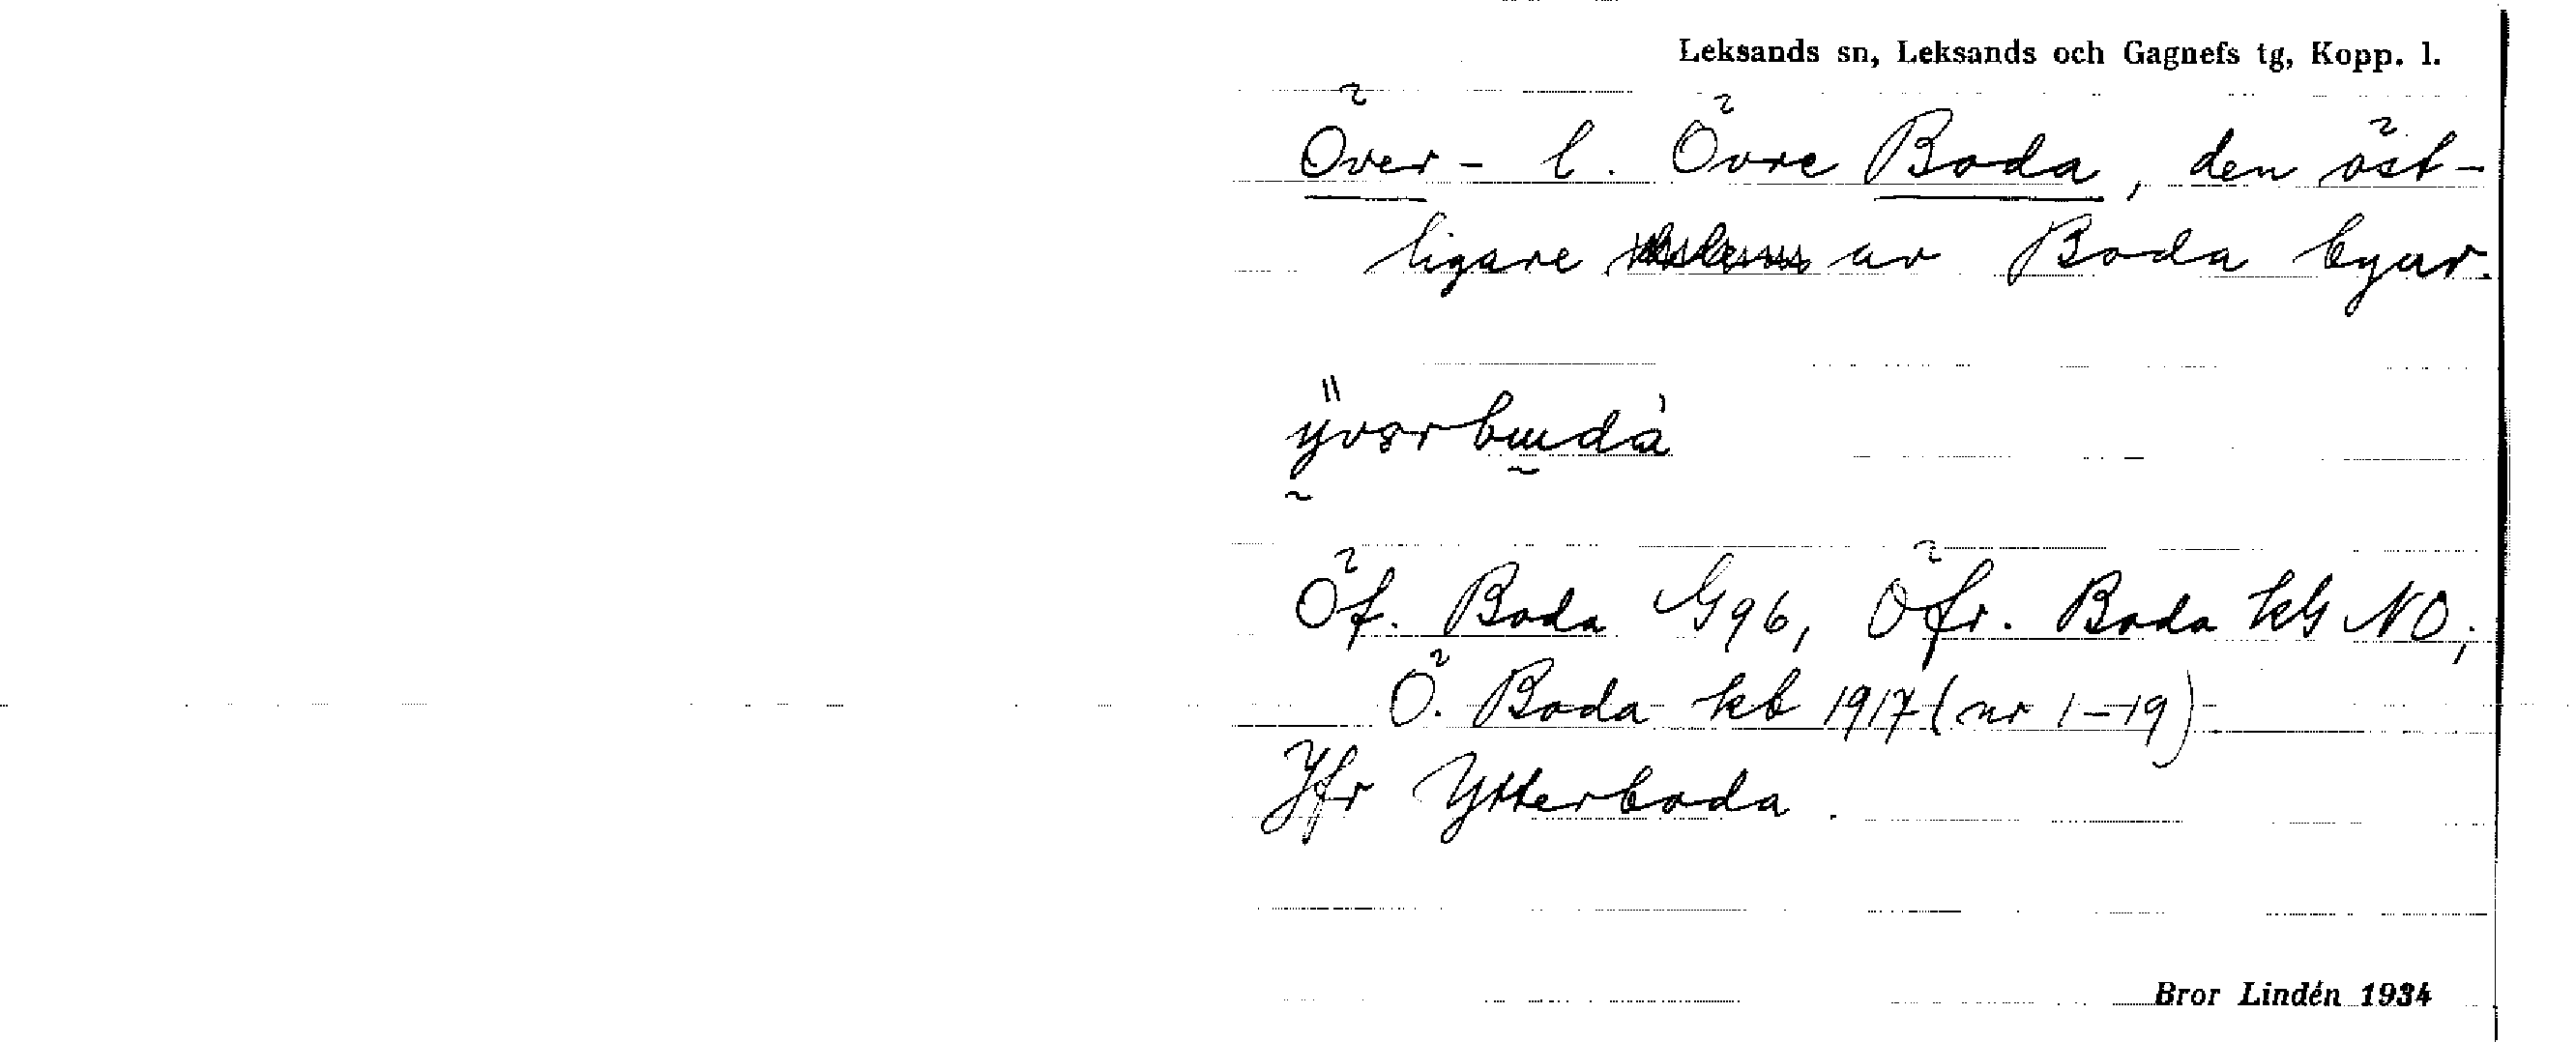 Leksands sn, Leksands och Gagnefs tg, Kopp. l.
Över- l. Övre Boda, den öst-
ligare av Boda byar.
Öf. Boda G96, Öfr. Boda kG NO;
Ö. Boda kb 1917 (nr 1-19)
Jfr Ytterboda.
Bror Lindén 1934